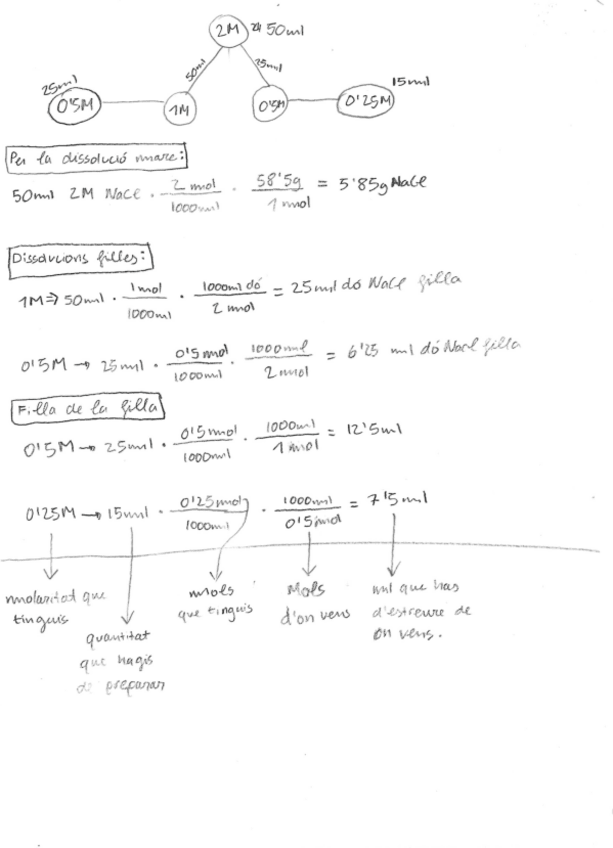 2M 50ml
50ml 25ml
25ml 15ml
0'5M 1M 0'5M 0'25M
Per la dissolució mare:
50ml 2M NaCl · 2 mol / 1000ml · 58'5g / 1 mol = 5'85g NaCl
Dissolucions filles:
1M ⇒ 50ml · 1mol / 1000ml · 1000ml dó / 2 mol = 25ml dó NaCl filla
0'5M → 25ml · 0'5mol / 1000ml · 1000ml / 2mol = 6'25 ml dó NaCl filla
Filla de la filla
0'5M → 25ml · 0'5mol / 1000ml · 1000ml / 1mol = 12'5ml
0'25M → 15ml · 0'25mol / 1000ml · 1000ml / 0'5mol = 7'5ml
molaritat que tinguis
quantitat que hagis de preparar
mols que tinguis
Mols d'on vens
ml que has d'estreure de on vens.